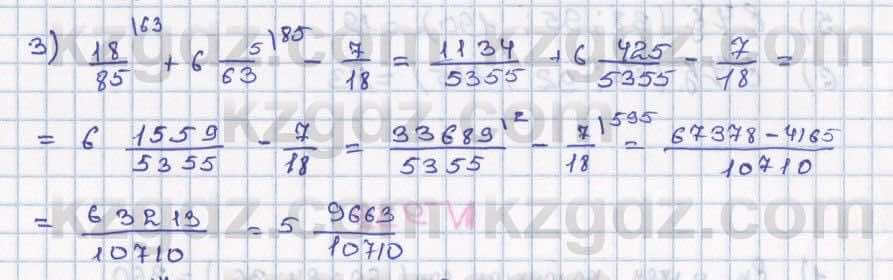 3) 18/85 \63 + 6 5/63 \85 − 7/18 = 1134/5355 + 6 425/5355 − 7/18 =
= 6 1559/5355 − 7/18 = 33689/5355 \2 − 7/18 \595 = 67378−4165/10710
= 63213/10710 = 5 9663/10710
kzgdz.com